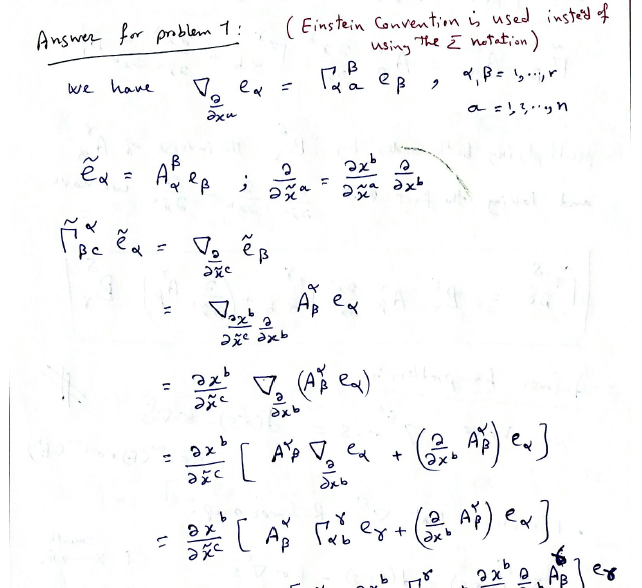 Answer for problem 1: (Einstein Convention is used insted of
using the Σ notation)
we have ∇_{∂/∂x^a} e_α = Γ_{α a}^β e_β , α, β = 1, ..., r
a = 1, 2, .., n
ẽ_α = A_α^β e_β ; ∂/∂x̃^a = ∂x^b/∂x̃^a ∂/∂x^b
Γ̃_{βc}^α ẽ_α = ∇_{∂/∂x̃^c} ẽ_β
= ∇_{∂x^b/∂x̃^c ∂/∂x^b} A_β^α e_α
= ∂x^b/∂x̃^c ∇_{∂/∂x^b} (A_β^α e_α)
= ∂x^b/∂x̃^c [ A_β^α ∇_{∂/∂x^b} e_α + (∂/∂x^b A_β^α) e_α ]
= ∂x^b/∂x̃^c [ A_β^α Γ_{αb}^γ e_γ + (∂/∂x^b A_β^α) e_α ]